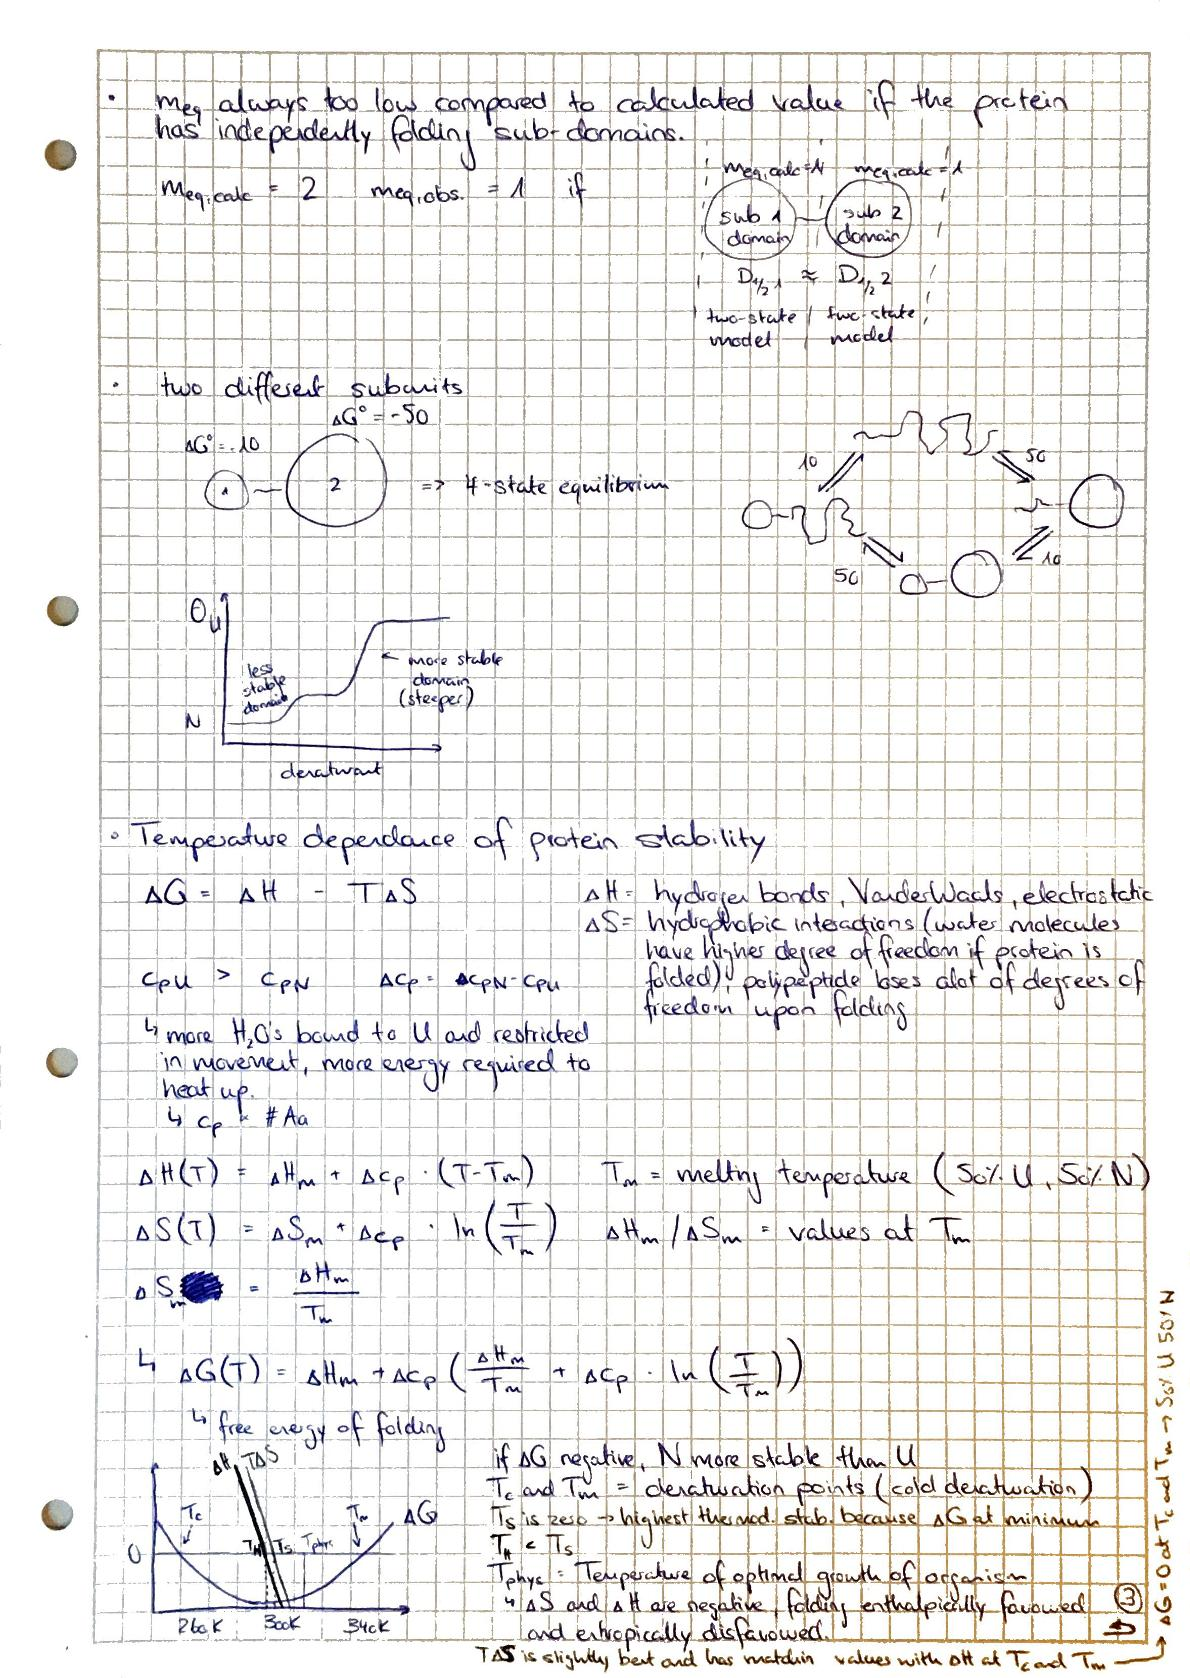 • meq always too low compared to calculated value if the protein
has independently folding sub-domains.
meq,calc = 2 meq,obs. = 1 if
meq,calc=1 meq,calc=1
sub 1 domain
sub 2 domain
D1/2 1 ≈ D1/2 2
two-state model
two-state model
• two different subunits
ΔG° = -50
ΔG° = -10
1
2
=> 4-state equilibrium
10
50
50
10
θ
U
N
less stable domain
← more stable domain (steeper)
denaturant
• Temperature dependance of protein stability
ΔG = ΔH - TΔS
ΔH = hydrogen bonds, VanderWaals, electrostatic
ΔS = hydrophobic interactions (water molecules
have higher degree of freedom if protein is
folded); polypeptide loses alot of degrees of
freedom upon folding
CpU > CpN ΔCp = CpN-CpU
↳ more H₂O's bound to U and restricted
in movement, more energy required to
heat up.
↳ Cp # Aa
ΔH(T) = ΔHm + ΔCp · (T-Tm) Tm = melting temperature (50% U, 50% N)
ΔS(T) = ΔSm + ΔCp · ln(T/Tm) ΔHm/ΔSm = values at Tm
ΔSm = ΔHm/Tm
↳ ΔG(T) = ΔHm + ΔCp (ΔHm/Tm + ΔCp · ln(T/Tm))
↳ free energy of folding
ΔH TΔS
Tc
Tm
ΔG
0
TH TS Tphys
260K 300K 340K
if ΔG negative, N more stable than U
Tc and Tm = denaturation points (cold denaturation)
Ts is zero → highest thermod. stab. because ΔG at minimum
TH < TS
Tphys = Temperature of optimal growth of organism
↳ ΔS and ΔH are negative, folding enthalpically favoured
and entropically disfavoured.
3
TΔS is slightly bent and has matchin values with ΔH at Tc and Tm
→ ΔG=0 at Tc and Tm → 50% U 50% N